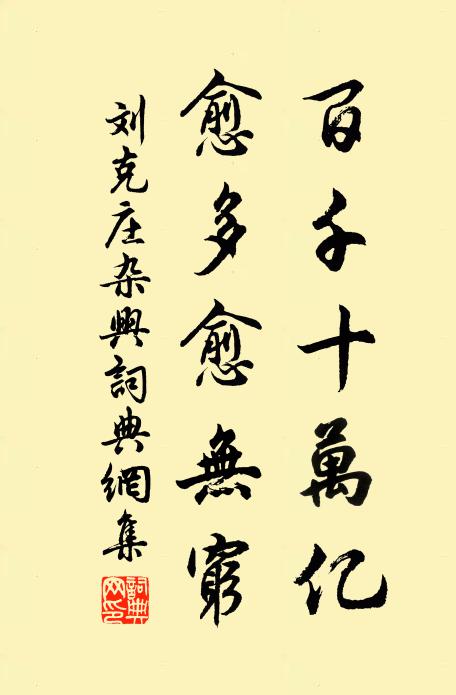 百千十萬亿
愈多愈無窮
刘克庄杂興詞典網集
詞典
网印